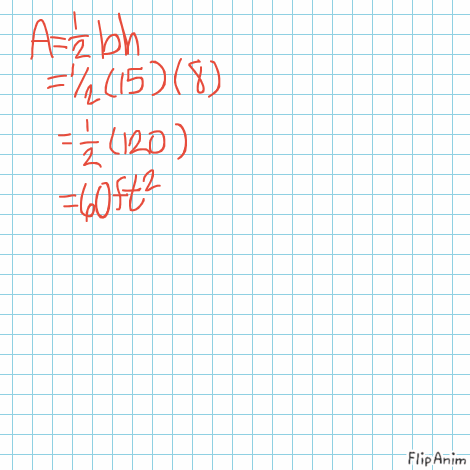 A=½bh
=1/2(15)(8)
=½(120)
=60ft²
FlipAnim